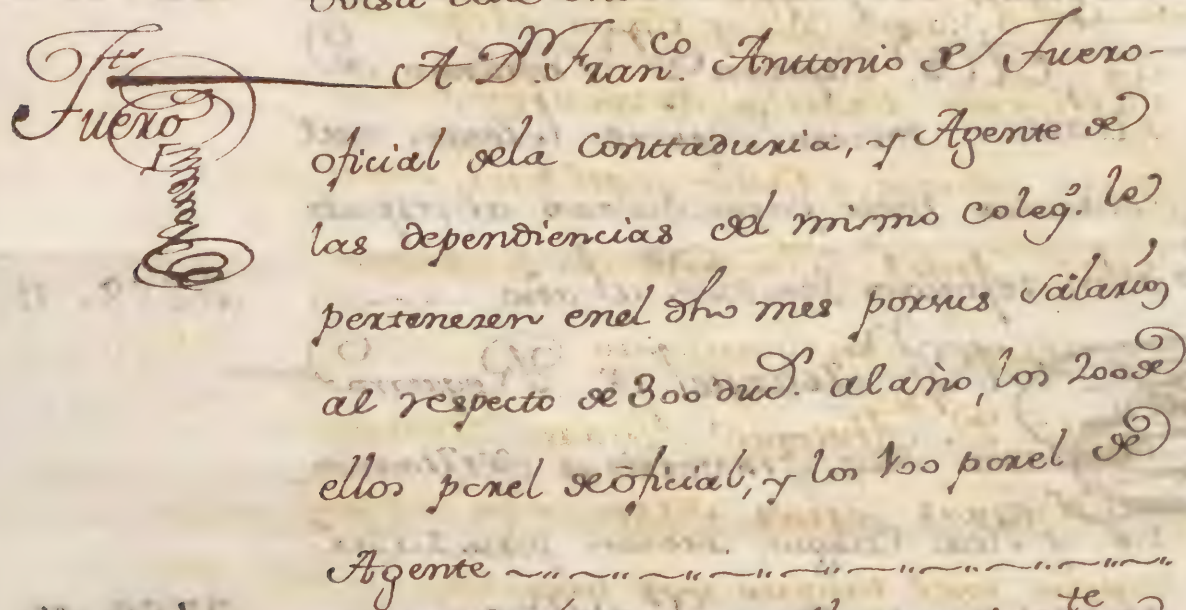 A D.ⁿ Fran.co Anttonio de Fuero-
Fuero
oficial dela Conttaduria, y Agente de
las dependiencias del mismo coleg.º le
pertenezen enel dho mes porsus salarios
al respecto de 300 duc.s al año, los 200 de
ellos porel de oficial; y los 100 porel de
Agente